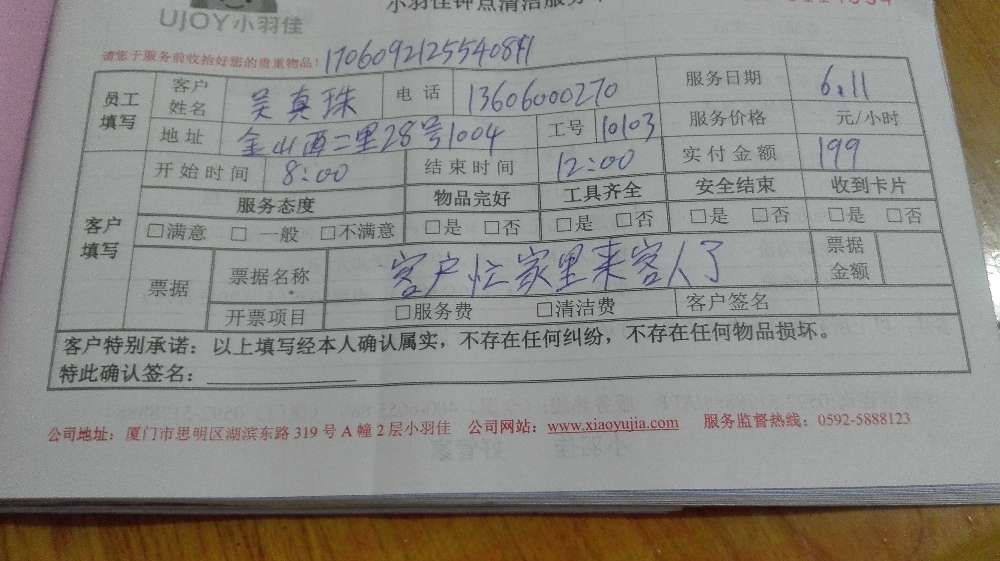 UJOY小羽佳
小羽佳钟点清洁服务
请您于服务前收拾好您的贵重物品!
员工填写 客户姓名 吴真珠 电话 13606000270 服务日期 6.11
地址 金山西二里28号1004 工号 10103 服务价格 元/小时
客户填写 开始时间 8:00 结束时间 12:00 实付金额 199
服务态度 物品完好 工具齐全 安全结束 收到卡片
□满意 □一般 □不满意 □是 □否 □是 □否 □是 □否 □是 □否
票据 票据名称 客户忙家里来客人了 票据金额
开票项目 □服务费 □清洁费 客户签名
客户特别承诺：以上填写经本人确认属实，不存在任何纠纷，不存在任何物品损坏。
特此确认签名：
公司地址：厦门市思明区湖滨东路319号A幢2层小羽佳 公司网站：www.xiaoyujia.com 服务监督热线：0592-5888123